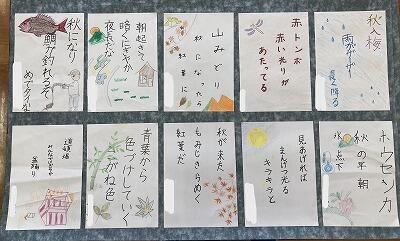 秋入梅
雨がザーザー
長く降る
赤トンボ
赤い光りが
あたってる
山みどり
秋になったら
紅葉に
朝起きて
暗くにぎやか
夜長だな
秋になり
鯛が釣れるぞ
めでたいな
ホウセンカ
秋の早朝
水点下
見あげれば
まんげつ光る
キラキラと
秋が来た
もみじからぬく
紅葉だ
青葉から
色づけしていく
こがね色
道頓堀
みんなではなやか
盆踊り